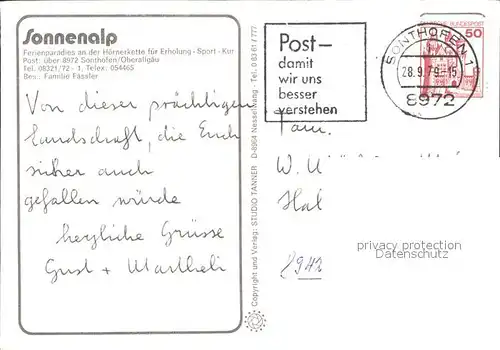 Sonnenalp
Ferienparadies an der Hörnerkette für Erholung - Sport - Kur
Post: über 8972 Sonthofen/Oberallgäu
Tel. 08321/72 - 1, Telex: 054465
Bes.: Familie Fässler
Von dieser prächtigen
Landschaft, die Euch
sicher auch
gefallen würde
herzliche Grüsse
Gust + Martheli
Copyright und Verlag: STUDIO TANNER D-8964 Nesselwang - Tel. 0 83 61 / 777
Post–
damit
wir uns
besser
verstehen
SONTHOFEN 1
28.9.79-15
8972
DEUTSCHE BUNDESPOST
50
Fam.
W.
privacy protection
AnsichtskartenVersand.com
8942